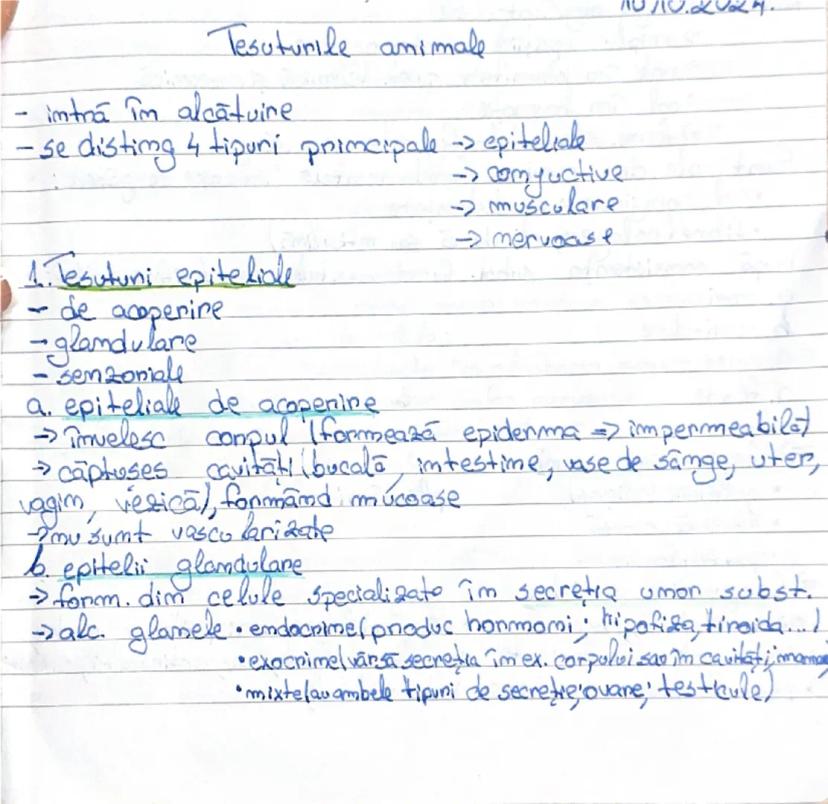 10.10.2024.
Țesuturile animale
- intră în alcătuire
- se disting 4 tipuri principale -> epiteliale
-> conjuctive
-> musculare
-> nervoase
1. Țesuturi epiteliale
- de acoperire
- glandulare
- senzoriale
a. epiteliale de acoperire
-> învelesc corpul (formează epiderma => impermeabilă)
-> căptușes cavități (bucală, intestine, vase de sânge, uter,
vagin, vezică), formând mucoase
-> nu sunt vascularizate
b. epitelii glandulare
-> form. din celule specializate în secreția unor subst.
-> alc. glanele • endocrine (produc hormoni; hipofiza, tiroida...)
• exocrine (varsă secreția în ex. corpului sau în cavități;
• mixte (au ambele tipuri de secreție; ovare; testicule)